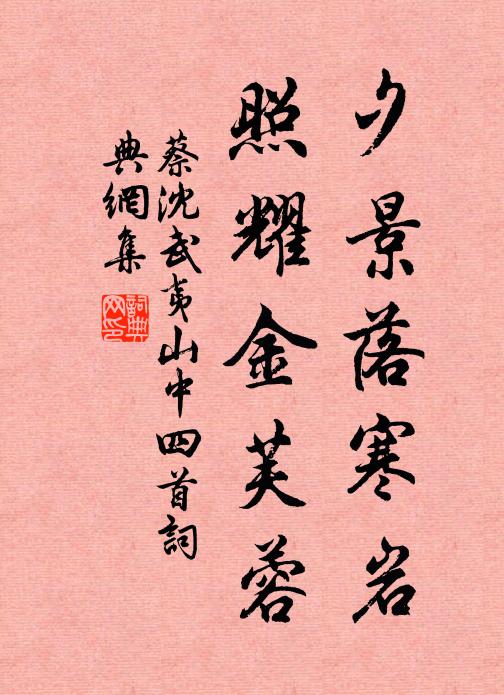 夕景落寒岩
照耀金芙蓉
蔡沈武夷山中四首詞
典網集
詞典
网印